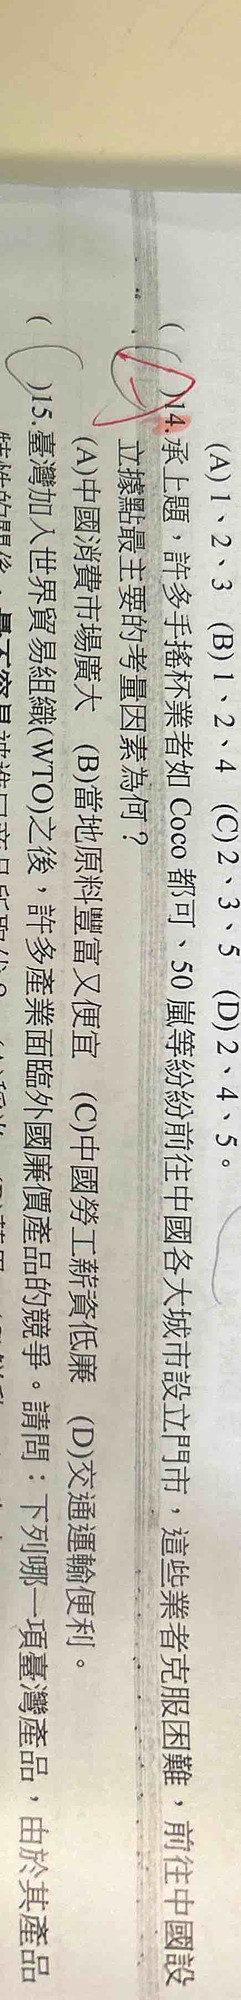 (A) 1、2、3 (B) 1、2、4 (C) 2、3、5 (D) 2、4、5。
( )14.承上題，許多手搖杯業者如 Coco 都可、50 嵐等紛紛前往中國各大城市設立門市，這些業者克服困難，前往中國設
立據點最主要的考量因素為何？
(A)中國消費市場廣大 (B)當地原料豐富又便宜 (C)中國勞工薪資低廉 (D)交通運輸便利。
( )15.臺灣加入世界貿易組織(WTO)之後，許多產業面臨外國廉價產品的競爭。請問：下列哪一項臺灣產品，由於其產品